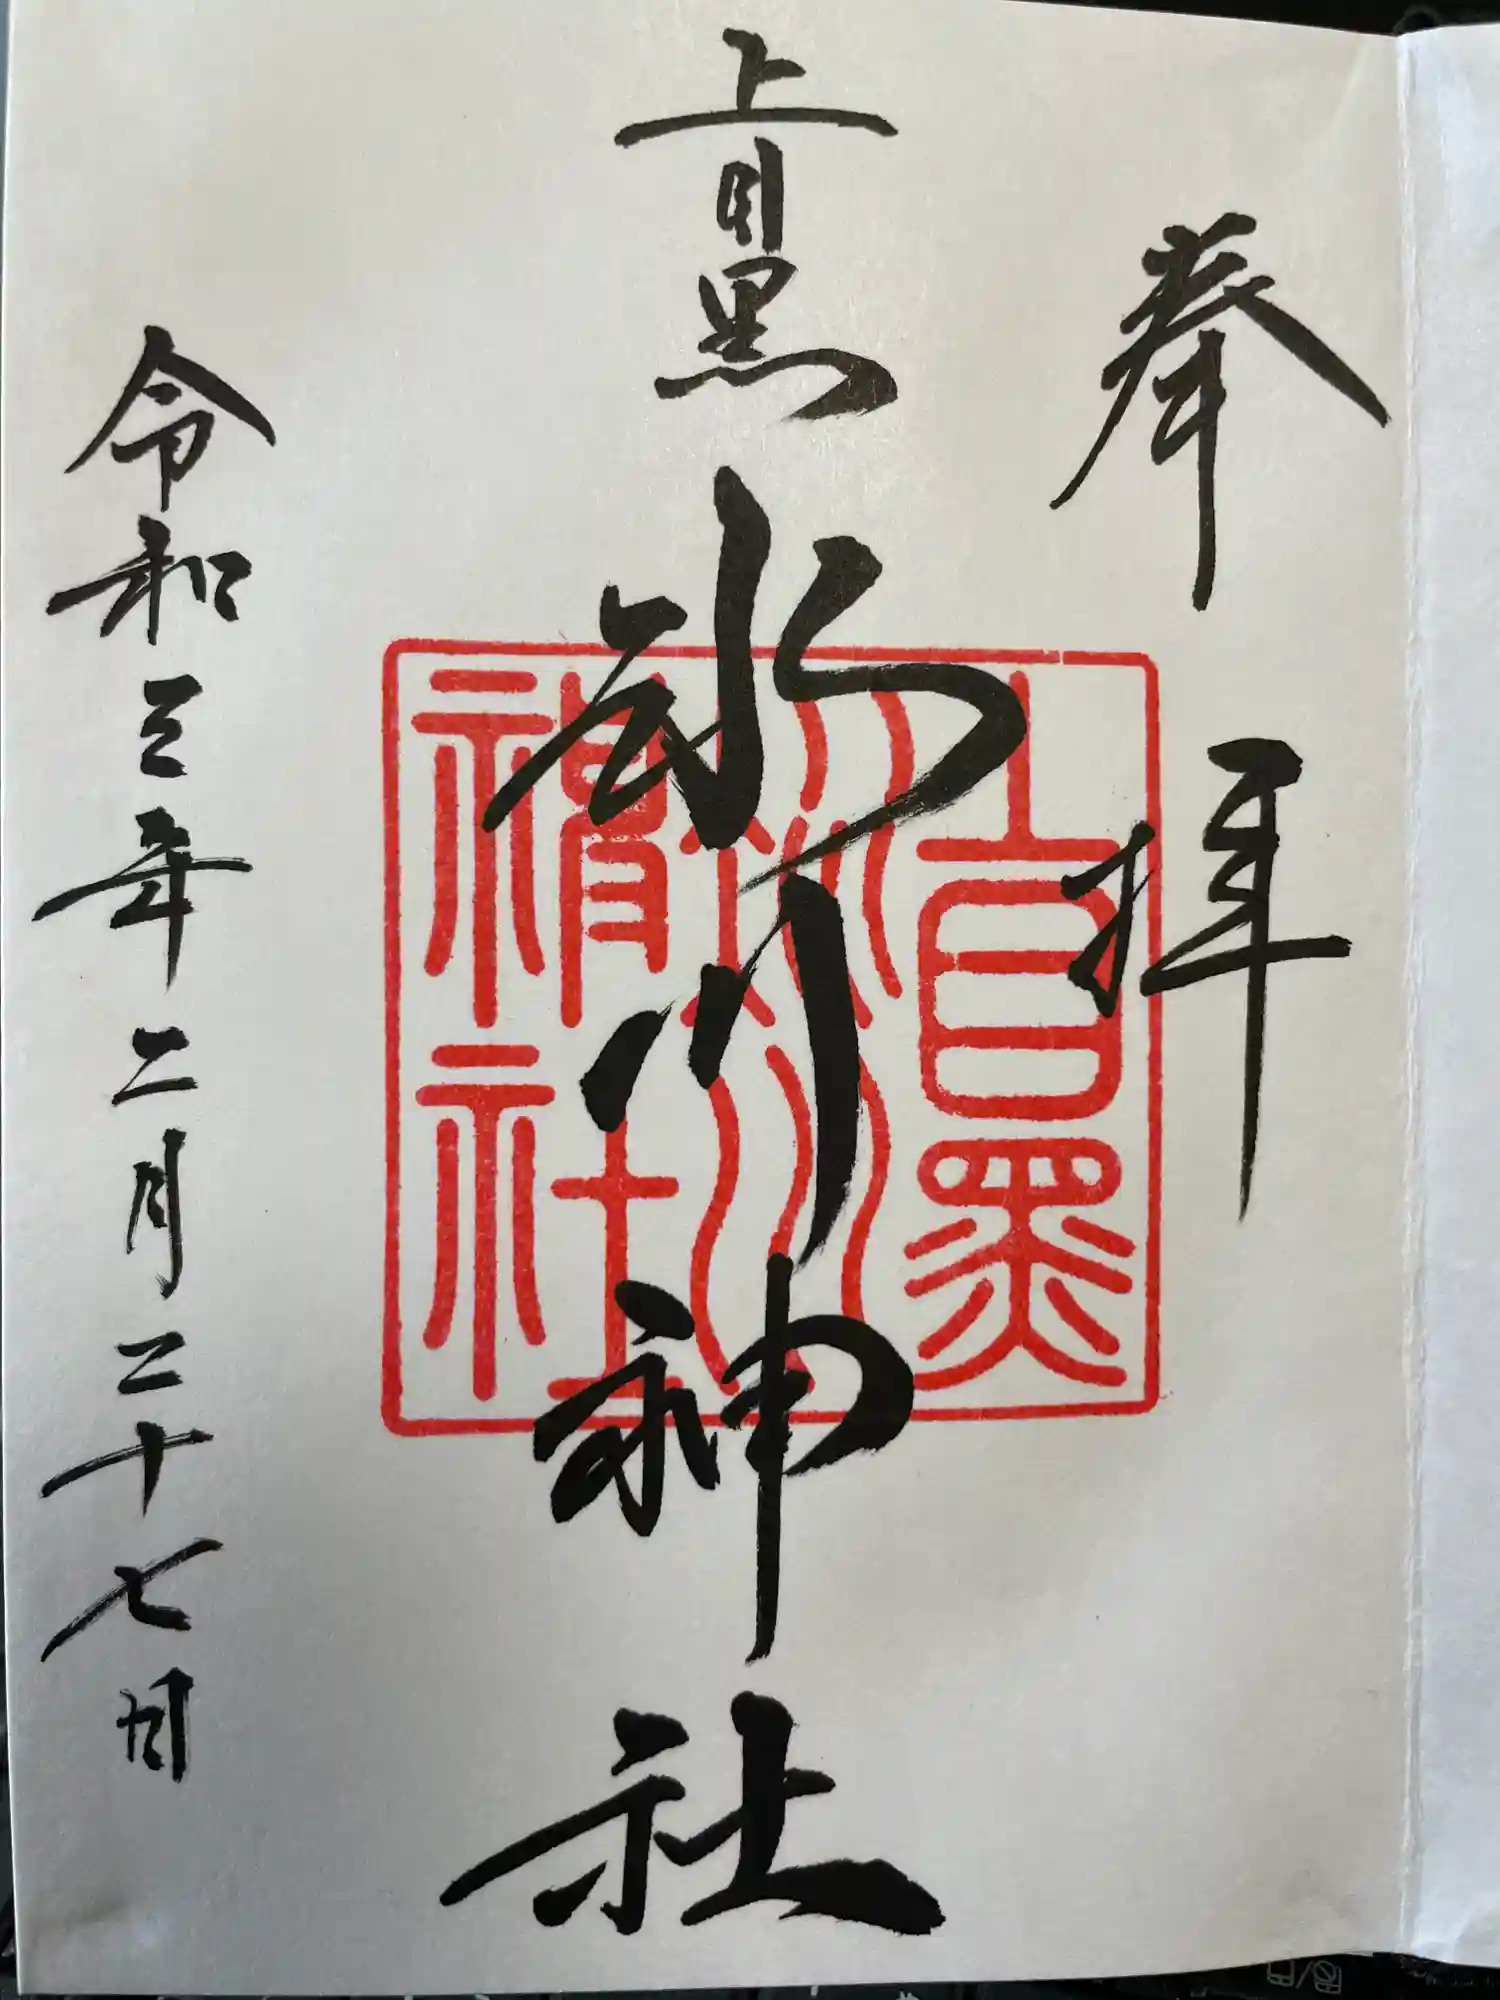 奉拝
上目黒
氷川神社
上目黒
氷川
神社
令和三年二月二十七日